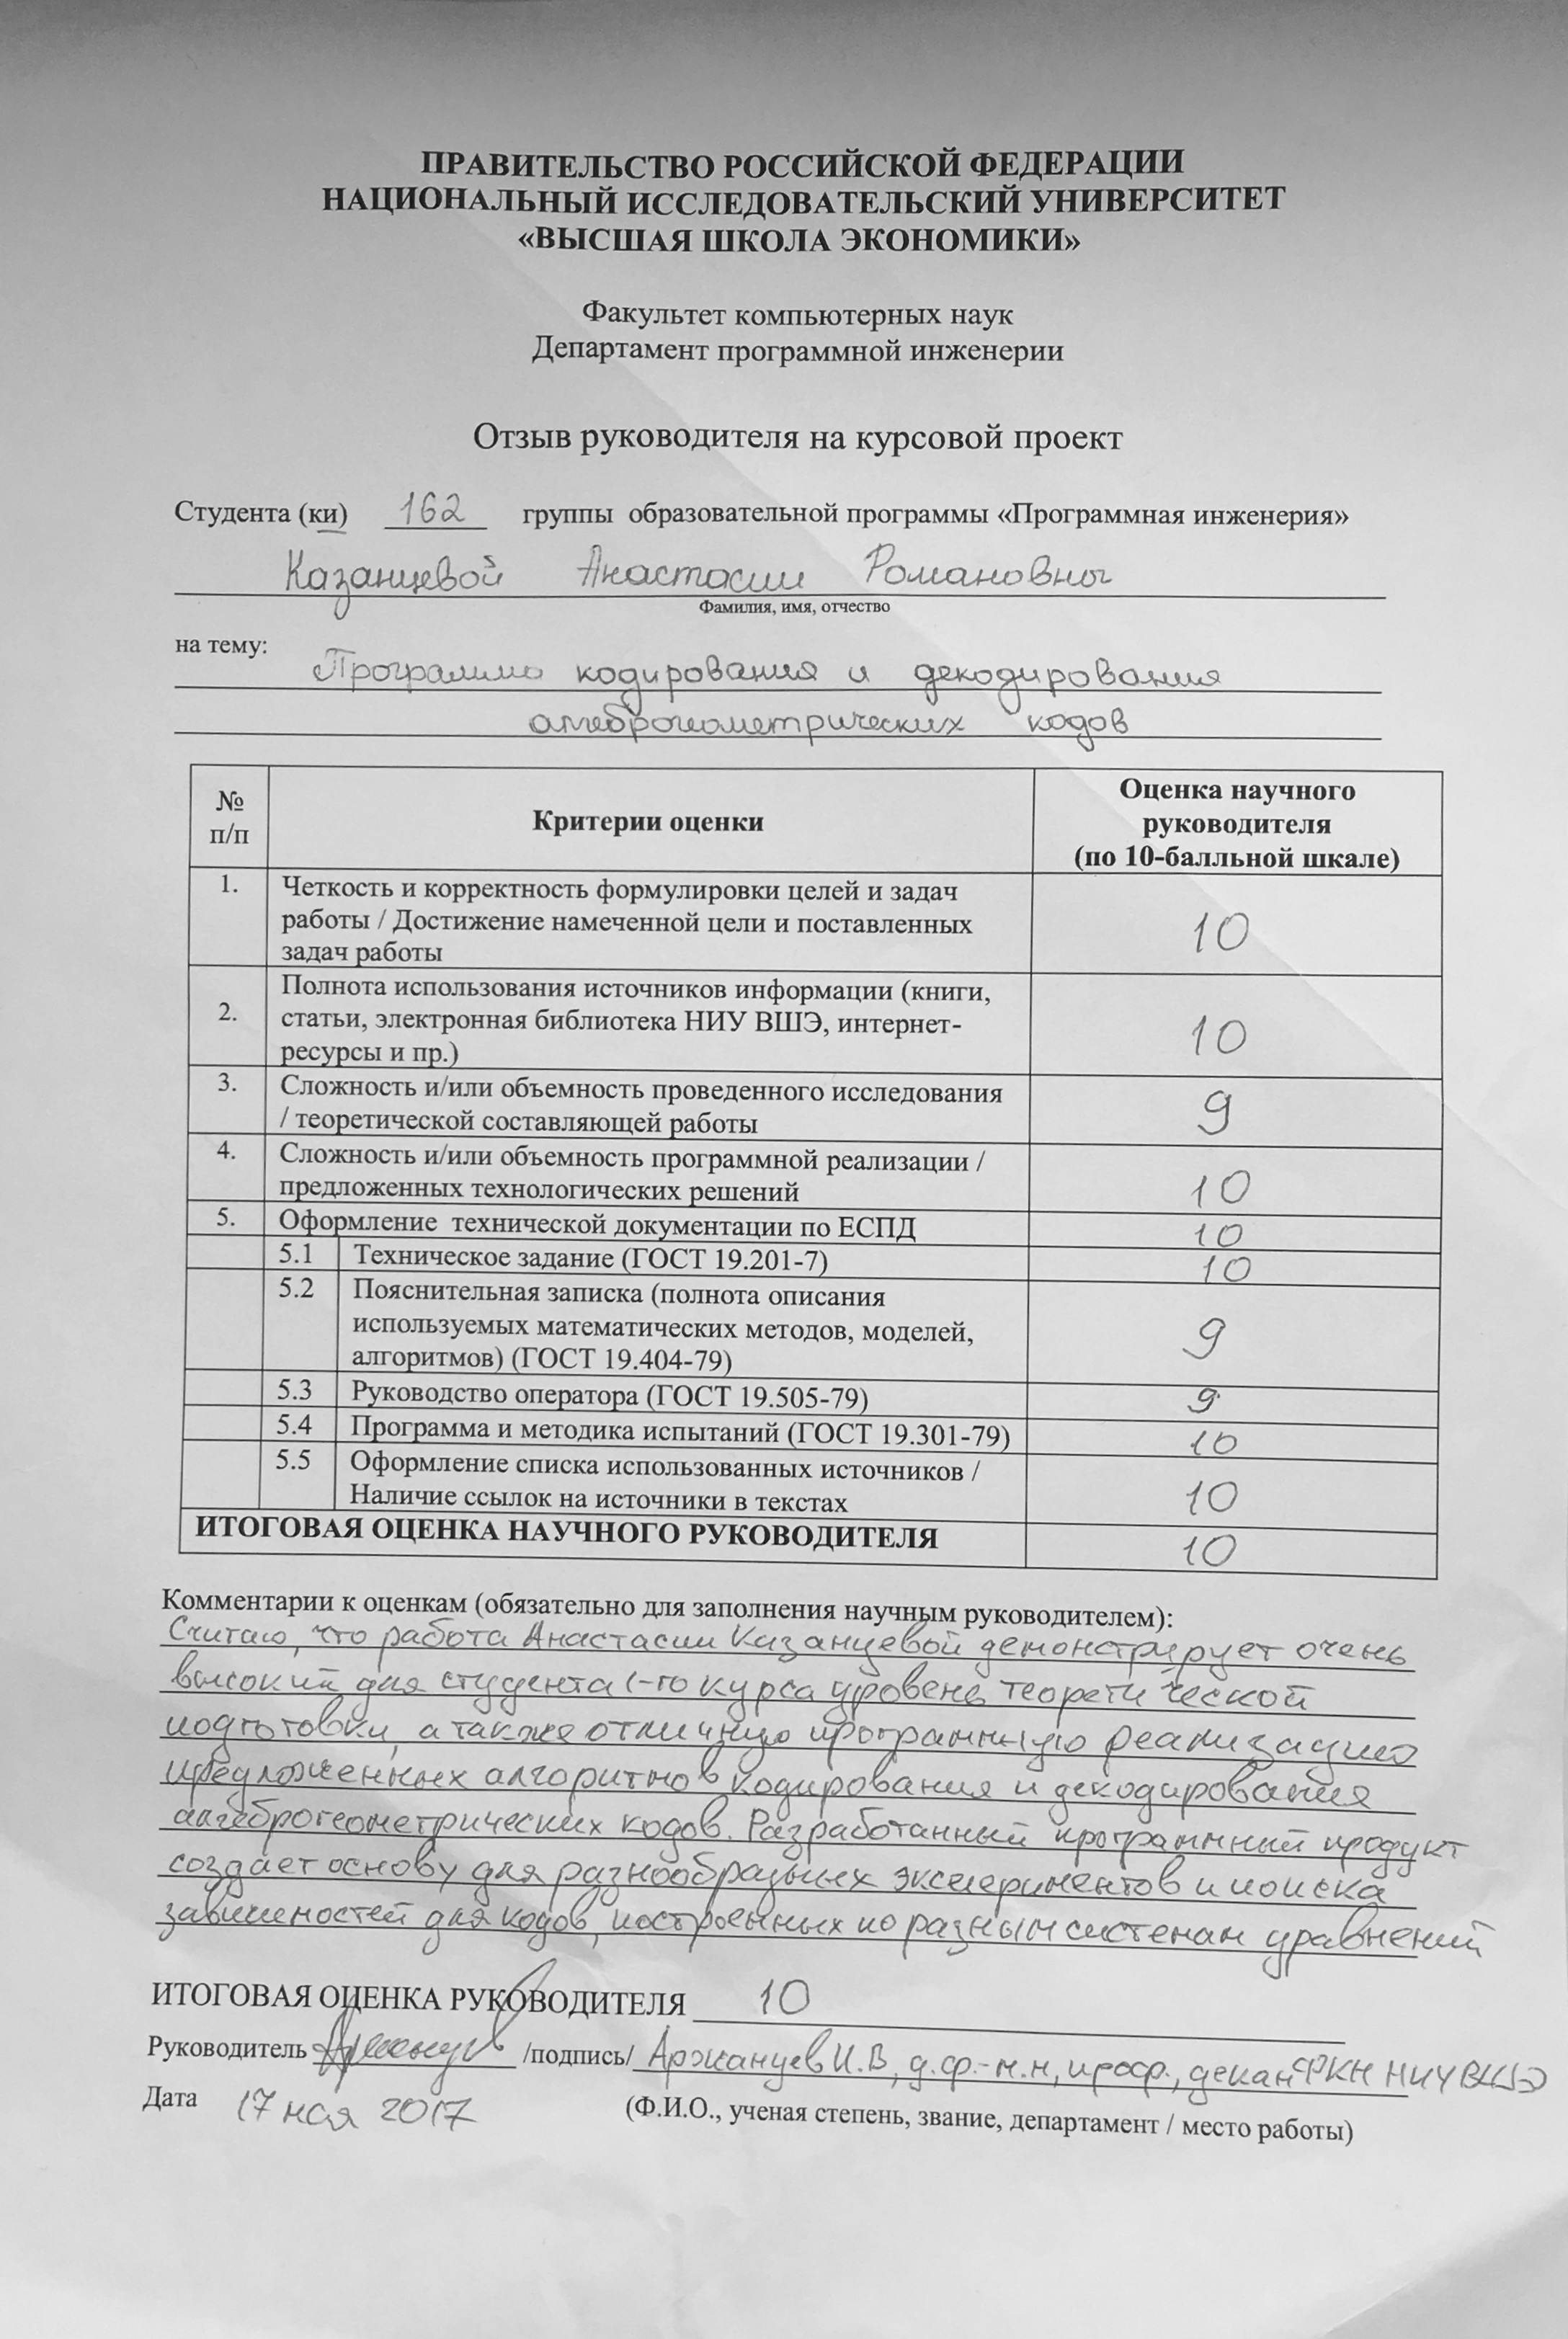 ПРАВИТЕЛЬСТВО РОССИЙСКОЙ ФЕДЕРАЦИИ
НАЦИОНАЛЬНЫЙ ИССЛЕДОВАТЕЛЬСКИЙ УНИВЕРСИТЕТ
«ВЫСШАЯ ШКОЛА ЭКОНОМИКИ»
Факультет компьютерных наук
Департамент программной инженерии
Отзыв руководителя на курсовой проект
Студента (ки) 162 группы образовательной программы «Программная инженерия»
Казанцевой Анастасии Романовны
Фамилия, имя, отчество
на тему:
Программа кодирования и декодирования
алгеброгеометрических кодов
№ п/п
Критерии оценки
Оценка научного
руководителя
(по 10-балльной шкале)
1. Четкость и корректность формулировки целей и задач
работы / Достижение намеченной цели и поставленных
задач работы
10
2. Полнота использования источников информации (книги,
статьи, электронная библиотека НИУ ВШЭ, интернет-
ресурсы и пр.)
10
3. Сложность и/или объемность проведенного исследования
/ теоретической составляющей работы
9
4. Сложность и/или объемность программной реализации /
предложенных технологических решений
10
5. Оформление технической документации по ЕСПД 10
5.1 Техническое задание (ГОСТ 19.201-7) 10
5.2 Пояснительная записка (полнота описания
используемых математических методов, моделей,
алгоритмов) (ГОСТ 19.404-79)
9
5.3 Руководство оператора (ГОСТ 19.505-79) 9
5.4 Программа и методика испытаний (ГОСТ 19.301-79) 10
5.5 Оформление списка использованных источников /
Наличие ссылок на источники в текстах
10
ИТОГОВАЯ ОЦЕНКА НАУЧНОГО РУКОВОДИТЕЛЯ 10
Комментарии к оценкам (обязательно для заполнения научным руководителем):
Считаю, что работа Анастасии Казанцевой демонстрирует очень
высокий для студента 1-го курса уровень теоретической
подготовки, а также отличную программную реализацию
предложенных алгоритмов кодирования и декодирования
алгеброгеометрических кодов. Разработанный программный продукт
создает основу для разнообразных экспериментов и поиска
зависимостей для кодов, построенных по разным системам уравнений
ИТОГОВАЯ ОЦЕНКА РУКОВОДИТЕЛЯ 10
Руководитель /подпись/ Аржанцев И.В, д.ф.-м.н, проф., декан ФКН НИУ ВШЭ
Дата 17 мая 2017 (Ф.И.О., ученая степень, звание, департамент / место работы)